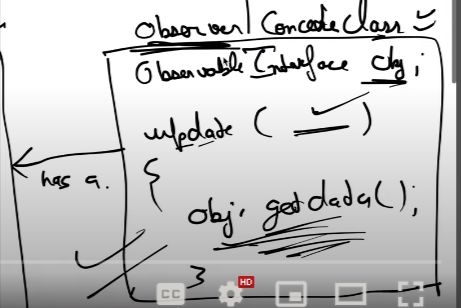 Observer Concrete Class
Observable Interface obj;
update ( )
{
has a.
obj. getdata();
}
CC
HD